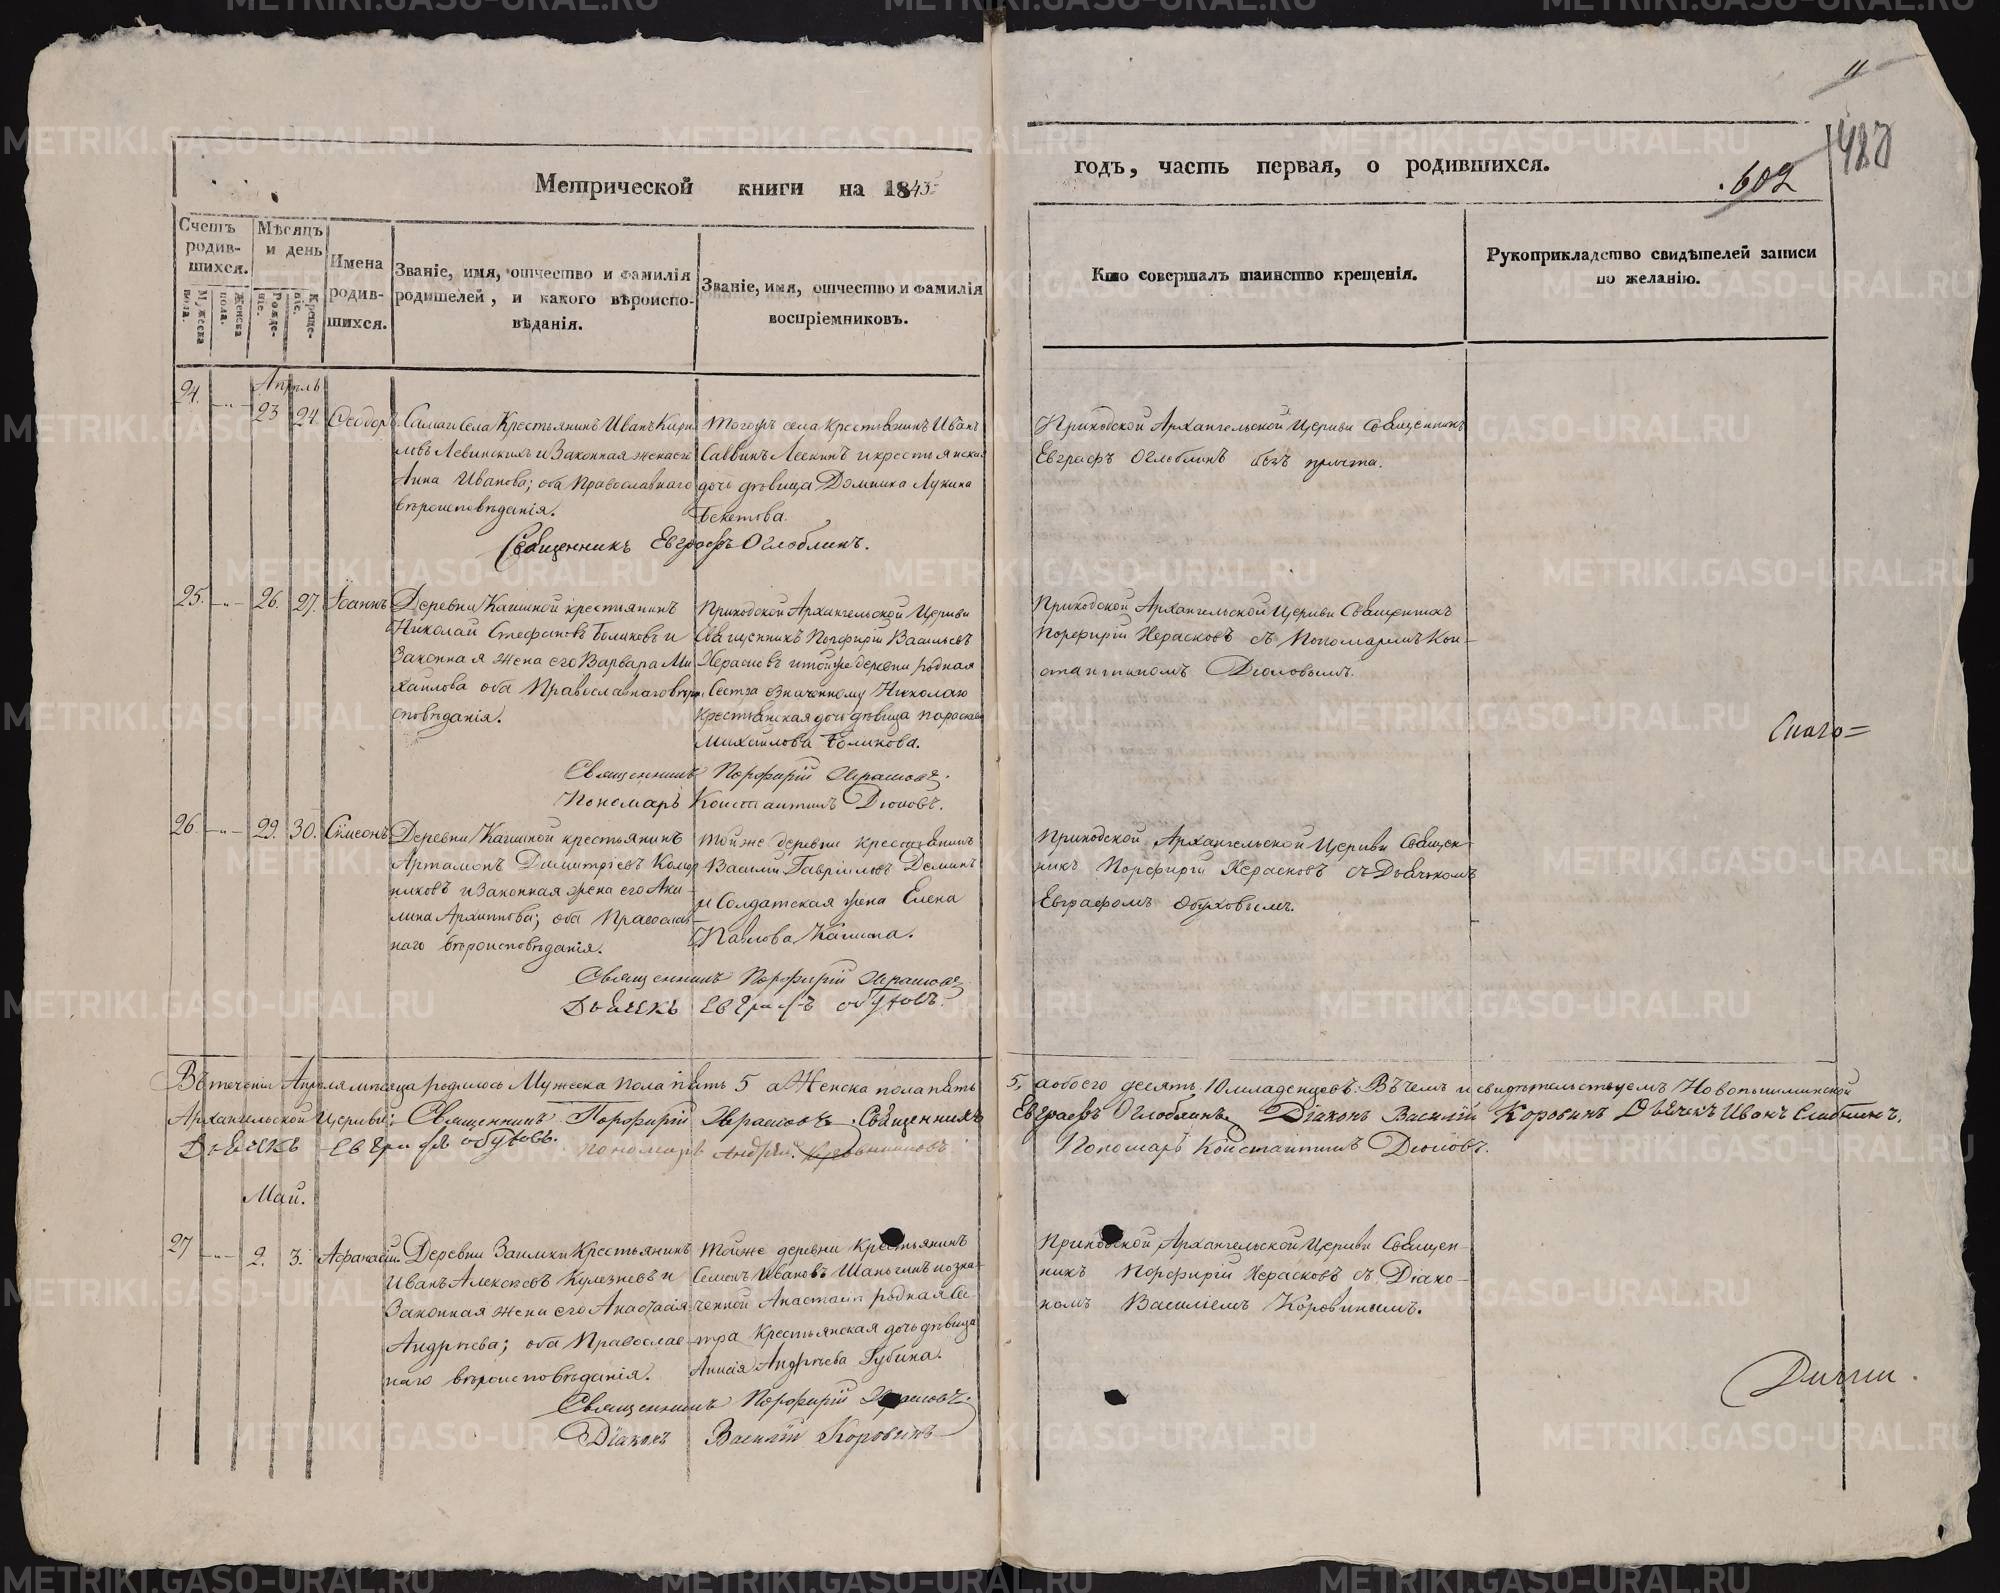 11
Метрической книги на 1843
годъ, часть первая, о родившихся.
602
Счетъ родившихся.
Мужеска пола.
Женска пола.
Мѣсяцъ и день
Рожденіе.
Крещеніе.
Имена родившихся.
Званіе, имя, отчество и фамилія
родителей, и какого вѣроиспо-
вѣданія.
Званіе, имя, отчество и фамилія
воспріемниковъ.
Кто совершалъ таинство крещенія.
Рукоприкладство свидѣтелей записи
по желанію.
Апрѣль
24. 23 24. Ѳеодоръ.
Села Крестьянинъ Иванъ
и Законная жена его
Анна Иванова; оба Православнаго
вѣроисповѣданія.
Тогожъ села крестьянинъ Иванъ
Саввинъ и крестьянская
дочь дѣвица Домника Лукина
Бекетова.
Приходской Архангельской Церкви Священникъ
Евграфъ Оглоблинъ безъ причта.
Священникъ Евграфъ Оглоблинъ.
25. 26. 27. Іоаннъ
Деревни Кашиной крестьянинъ
Николай Стефановъ и
Законная жена его Варвара Ми-
хайлова оба Православнаго вѣрои-
сповѣданія.
Приходской Архангельской Церкви
Священникъ Порфирій Васильевъ
Херасковъ и той же деревни родная
Сестра означенному Николаю
Крестьянская дочь дѣвица Параскева
Михайлова
Приходской Архангельской Церкви Священникъ
Порфирій Херасковъ съ Пономаремъ Кон-
стантиномъ
Священникъ Порфирій Херасковъ.
Пономарь Константинъ
Снаго=
26. 29. 30. Сімеонъ
Деревни Кашиной крестьянинъ
Артамонъ Димитріевъ
и Законная жена его Аки-
лина Архиппова; оба Православ-
наго вѣроисповѣданія.
Тойже деревни крестьянинъ
Василій Гавріиловъ Деминъ
и Солдатская жена Елена
Павлова Кашина.
Приходской Архангельской Церкви Священ-
никъ Порфирій Херасковъ съ Дьячкомъ
Евграфомъ Обуховымъ.
Священникъ Порфирій Херасковъ
Дьячекъ Евграфъ Обуховъ.
Въ теченіи Апрѣля мѣсяца родилось Мужеска пола пять 5 а Женска пола пять 5, а обоего десять 10 младенцевъ. Въ чемъ и свидѣтельствуемъ Новопышминской
Архангельской Церкви: Священникъ Порфирій Херасковъ. Священникъ Евграфъ Оглоблинъ Діаконъ Василій Коровинъ Дьячекъ Иванъ
Дьячекъ Евграфъ Обуховъ. Пономарь Андрей Пономарь Константинъ
Май.
27 2. 3. Аѳанасій.
Деревни Заимки Крестьянинъ
Иванъ Алексѣевъ и
Законная жена его Анастасія
Андрѣева; оба Православ-
наго вѣроисповѣданія.
Тойже деревни Крестьянинъ
Семенъ Ивановъ Шаньгинъ и озна-
ченной Анастасіи родная Се-
стра Крестьянская дочь дѣвица
Анисія Андрѣева Губина.
Приходской Архангельской Церкви Священ-
никъ Порфирій Херасковъ съ Діако-
номъ Василіемъ Коровинымъ.
Священникъ Порфирій Херасковъ.
Діаконъ Василій Коровинъ
METRIKI.GASO-URAL.RU